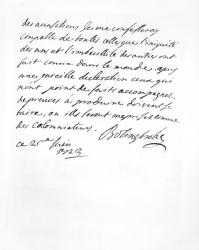 des accusations je me confesseray
coupable de toutes celles que l'iniquité
des uns et l'imbecillité des autres ont
fait courir dans le monde. apres
une pareille declaration ceux qui
n'ont point de faits accompagnes
de preuves a produire doivent se
taire, ou ils seront meprisés comme
des calomniateurs.
Bolingbroke
ce 25me Juin
1723